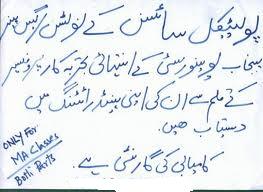 پولیٹیکل سائنس کے نوٹس
پنجاب یونیورسٹی کے انتہائی تجربہ کار پروفیسر
کے قلم سے ان کی اپنی ہینڈ رائٹنگ میں
دستیاب ہیں۔
کامیابی کی گارنٹی ہے۔
ONLY For
MA Classes
Both Parts